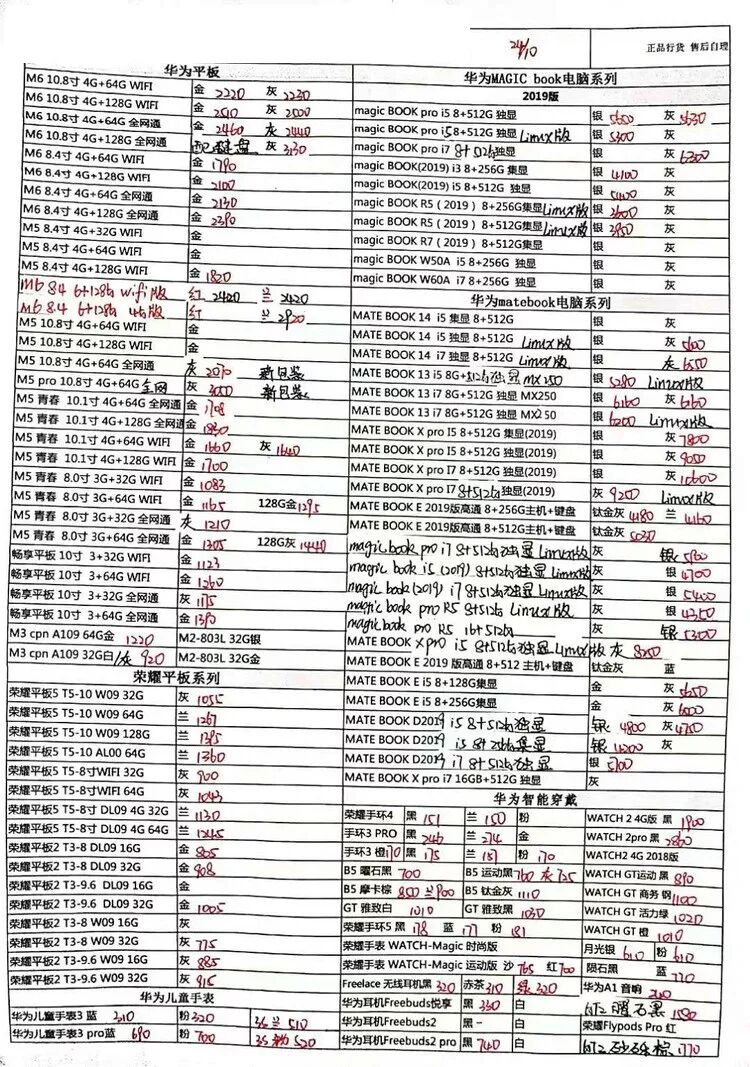 24/10 正品行货 售后自理
华为平板
M6 10.8寸 4G+64G WIFI 金 2220 灰 2230
M6 10.8寸 4G+128G WIFI 金 2510 灰 2500
M6 10.8寸 4G+64G 全网通 金 2460 灰 2440
M6 10.8寸 4G+128G 全网通 配键盘 灰 3130
M6 8.4寸 4G+64G WIFI 金 1790
M6 8.4寸 4G+128G WIFI 金 2100
M6 8.4寸 4G+64G 全网通 金 2130
M6 8.4寸 4G+128G 全网通 金 2390
M5 8.4寸 4G+32G WIFI 金
M5 8.4寸 4G+128G WIFI 金 1820
M6 8.4 6+128G wifi版 红 2420 兰 2420
M6 8.4 6+128G 4G版 红 兰 2920
M5 10.8寸 4G+64G WIFI 金
M5 10.8寸 4G+128G WIFI 金
M5 10.8寸 4G+64G 全网通 灰 2070 新包装
M5 pro 10.8寸 4G+64G 全网 灰 3050 新包装
M5 青春 10.1寸 4G+64G 全网通 金 1708
M5 青春 10.1寸 4G+128G 全网通 金 1830
M5 青春 10.1寸 4G+64G WIFI 金 1660 灰 1640
M5 青春 10.1寸 4G+128G WIFI 金 1700
M5 青春 8.0寸 3G+32G WIFI 金 1083
M5 青春 8.0寸 3G+64G WIFI 金 1165 128G金 1295
M5 青春 8.0寸 3G+32G 全网通 灰 1210
M5 青春 8.0寸 3G+64G 全网通 金 1305 128G灰 1440
畅享平板 10寸 3+32G WIFI 金 1123
畅享平板 10寸 3+64G WIFI 金 1260
畅享平板 10寸 3+32G 全网通 金 1175
畅享平板 10寸 3+64G 全网通 金 1390
M3 cpn A109 64G金 1220 M2-803L 32G银
M3 cpn A109 32G白/灰 920 M2-803L 32G金
荣耀平板系列
荣耀平板5 T5-10 W09 32G 灰 1055
荣耀平板5 T5-10 W09 64G 兰 1267
荣耀平板5 T5-10 W09 128G 兰 1395
荣耀平板5 T5-10 AL00 64G 兰 1360
荣耀平板5 T5-8寸WIFI 32G 灰 900
荣耀平板5 T5-8寸WIFI 64G 灰 1043
荣耀平板5 T5-8寸 DL09 4G 32G 兰 1130
荣耀平板5 T5-8寸 DL09 4G 64G 兰 1245
荣耀平板2 T3-8 DL09 16G 金 805
荣耀平板2 T3-8 DL09 32G 金 908
荣耀平板2 T3-9.6 DL09 16G 金
荣耀平板2 T3-9.6 DL09 32G 金 1005
荣耀平板2 T3-8 W09 16G 灰
荣耀平板2 T3-8 W09 32G 灰 775
荣耀平板2 T3-9.6 W09 16G 灰 885
荣耀平板2 T3-9.6 W09 32G 灰 915
华为儿童手表
华为儿童手表3 蓝 310 粉 320 3S 兰 510
华为儿童手表3 pro蓝 690 粉 700 3S 粉 520
华为MAGIC book电脑系列
2019版
magic BOOK pro i5 8+512G 独显 银 5600 灰 5630
magic BOOK pro i5 8+512G 独显 Linux版 银 5300 灰
magic BOOK pro i7 8+512G独显 银 灰 6300
magic BOOK(2019) i3 8+256G 集显 银 4100 灰
magic BOOK(2019) i5 8+512G 独显 银 5400 灰
magic BOOK R5 ( 2019 ) 8+256G集显 Linux版 银 2600 灰
magic BOOK R5 ( 2019 ) 8+512G集显 Linux版 银 3950 灰
magic BOOK R7 ( 2019 ) 8+512G集显 银 灰
magic BOOK W50A i5 8+256G 独显 银 灰
magic BOOK W60A i7 8+256G 独显 银 灰
华为matebook电脑系列
MATE BOOK 14 i5 集显 8+512G 银 灰
MATE BOOK 14 i5 独显 8+512G Linux版 银 灰
MATE BOOK 14 i7 独显 8+512G Linux版 银 灰 6550
MATE BOOK 13 i5 8G+512G独显 MX150 银 5280 Linux版
MATE BOOK 13 i7 8G+512G 独显 MX250 银 6160 灰 6160
MATE BOOK 13 i7 8G+512G 独显 MX250 银 6200 Linux版
MATE BOOK X pro I5 8+512G 集显(2019) 银 灰 7800
MATE BOOK X pro I5 8+512G 独显(2019) 银 灰 9050
MATE BOOK X pro I7 8+512G 独显(2019) 银 灰 10600
MATE BOOK X pro I7 8+512G独显(2019) 灰 9250 Linux版
MATE BOOK E 2019版高通 8+256G主机+键盘 钛金灰 4180 兰 4160
MATE BOOK E 2019版高通 8+512G主机+键盘 钛金灰 5030
magic book pro i7 8+512G独显 Linux版 灰 银
magic book i5 (2019) 8+512G独显 Linux版 灰 银 4700
magic book (2019) i7 8+512G独显 灰 银 5400
magic book pro R5 8+512G Linux版 灰 银 4350
magic book pro R5 16+512G 灰 银 5300
MATE BOOK X pro i5 8+512G独显 Linux版 灰 8250
MATE BOOK E 2019 版高通 8+512 主机+键盘 钛金灰 蓝
MATE BOOK E i5 8+128G集显 金 灰 5650
MATE BOOK E i5 8+256G集显 金 灰 6000
MATE BOOK D2019 i5 8+512G独显 银 4800 灰 4750
MATE BOOK D2019 i5 8+256G集显 银 4200 灰
MATE BOOK D2019 i7 8+512G独显 银 5700
MATE BOOK X pro i7 16GB+512G 独显 灰
华为智能穿戴
荣耀手环4 黑 151 兰 150 粉 WATCH 2 4G版 黑 1900
手环3 PRO 黑 246 兰 274 金 WATCH 2pro 黑 2860
手环3 橙170 黑 175 兰 157 粉 170 WATCH2 4G 2018版
B5 曜石黑 700 B5 运动黑 760 灰 725 WATCH GT运动 黑 890
B5 摩卡棕 850 兰 900 B5 钛金灰 1110 WATCH GT 商务 钢 1100
GT 雅致白 1010 GT 雅致黑 1030 WATCH GT 活力绿 1020
荣耀手环5 黑 178 蓝 177 粉 181 WATCH GT 橙 1010
荣耀手表 WATCH-Magic 时尚版 月光银 610 粉 610
荣耀手表 WATCH-Magic 运动版 沙 765 红 700 陨石黑 蓝
Freelace 无线耳机黑 320 赤茶 310 绿 320 华为A1 音响
华为耳机Freebuds悦享 黑 330 白 GT2 曜石黑 1580
华为耳机Freebuds2 黑 - 白 荣耀Flypods Pro 红
华为耳机Freebuds2 pro 黑 740 白 GT2 砂砾棕 1770